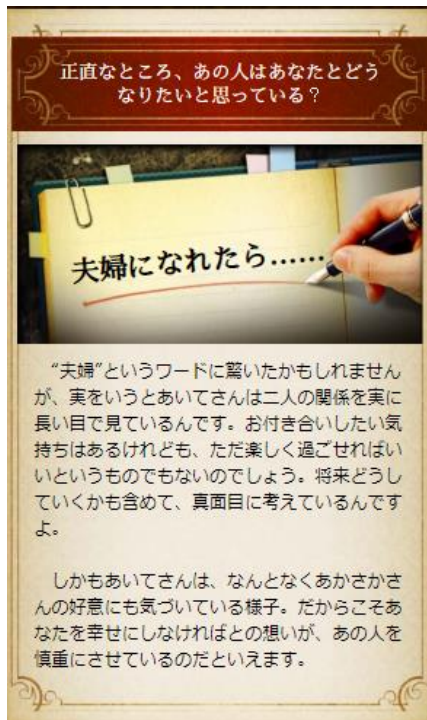 正直なところ、あの人はあなたとどう
なりたいと思っている？
夫婦になれたら……
“夫婦”というワードに驚いたかもしれません
が、実をいうとあいてさんは二人の関係を実に
長い目で見ているんです。お付き合いしたい気
持ちはあるけれども、ただ楽しく過ごせればい
いというものでもないのでしょう。将来どうし
ていくかも含めて、真面目に考えているんです
よ。
しかもあいてさんは、なんとなくあかさかさ
んの好意にも気づいている様子。だからこそあ
なたを幸せにしなければとの想いが、あの人を
慎重にさせているのだといえます。